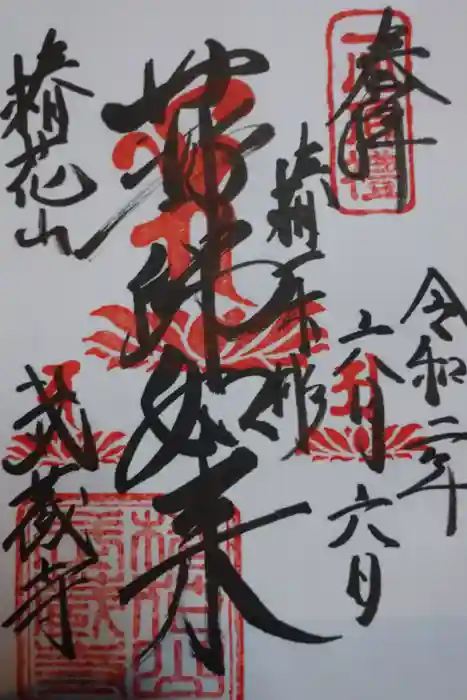 奉拝
令和二年
六月六日
椿木彫
薬師如来
椿花山
武蔵寺